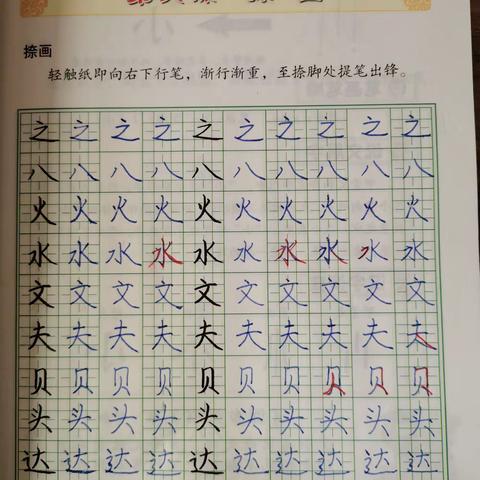 捺画
轻触纸即向右下行笔，渐行渐重，至捺脚处提笔出锋。
之之之之之之之之之之
八八八八八八八八八八
火火火火火火火火火火
水水水水水水水水水水
文文文文文文文文文文
夫夫夫夫夫夫夫夫夫夫
贝贝贝贝贝贝贝贝贝贝
头头头头头头头头头头
达达达达达达达达达达